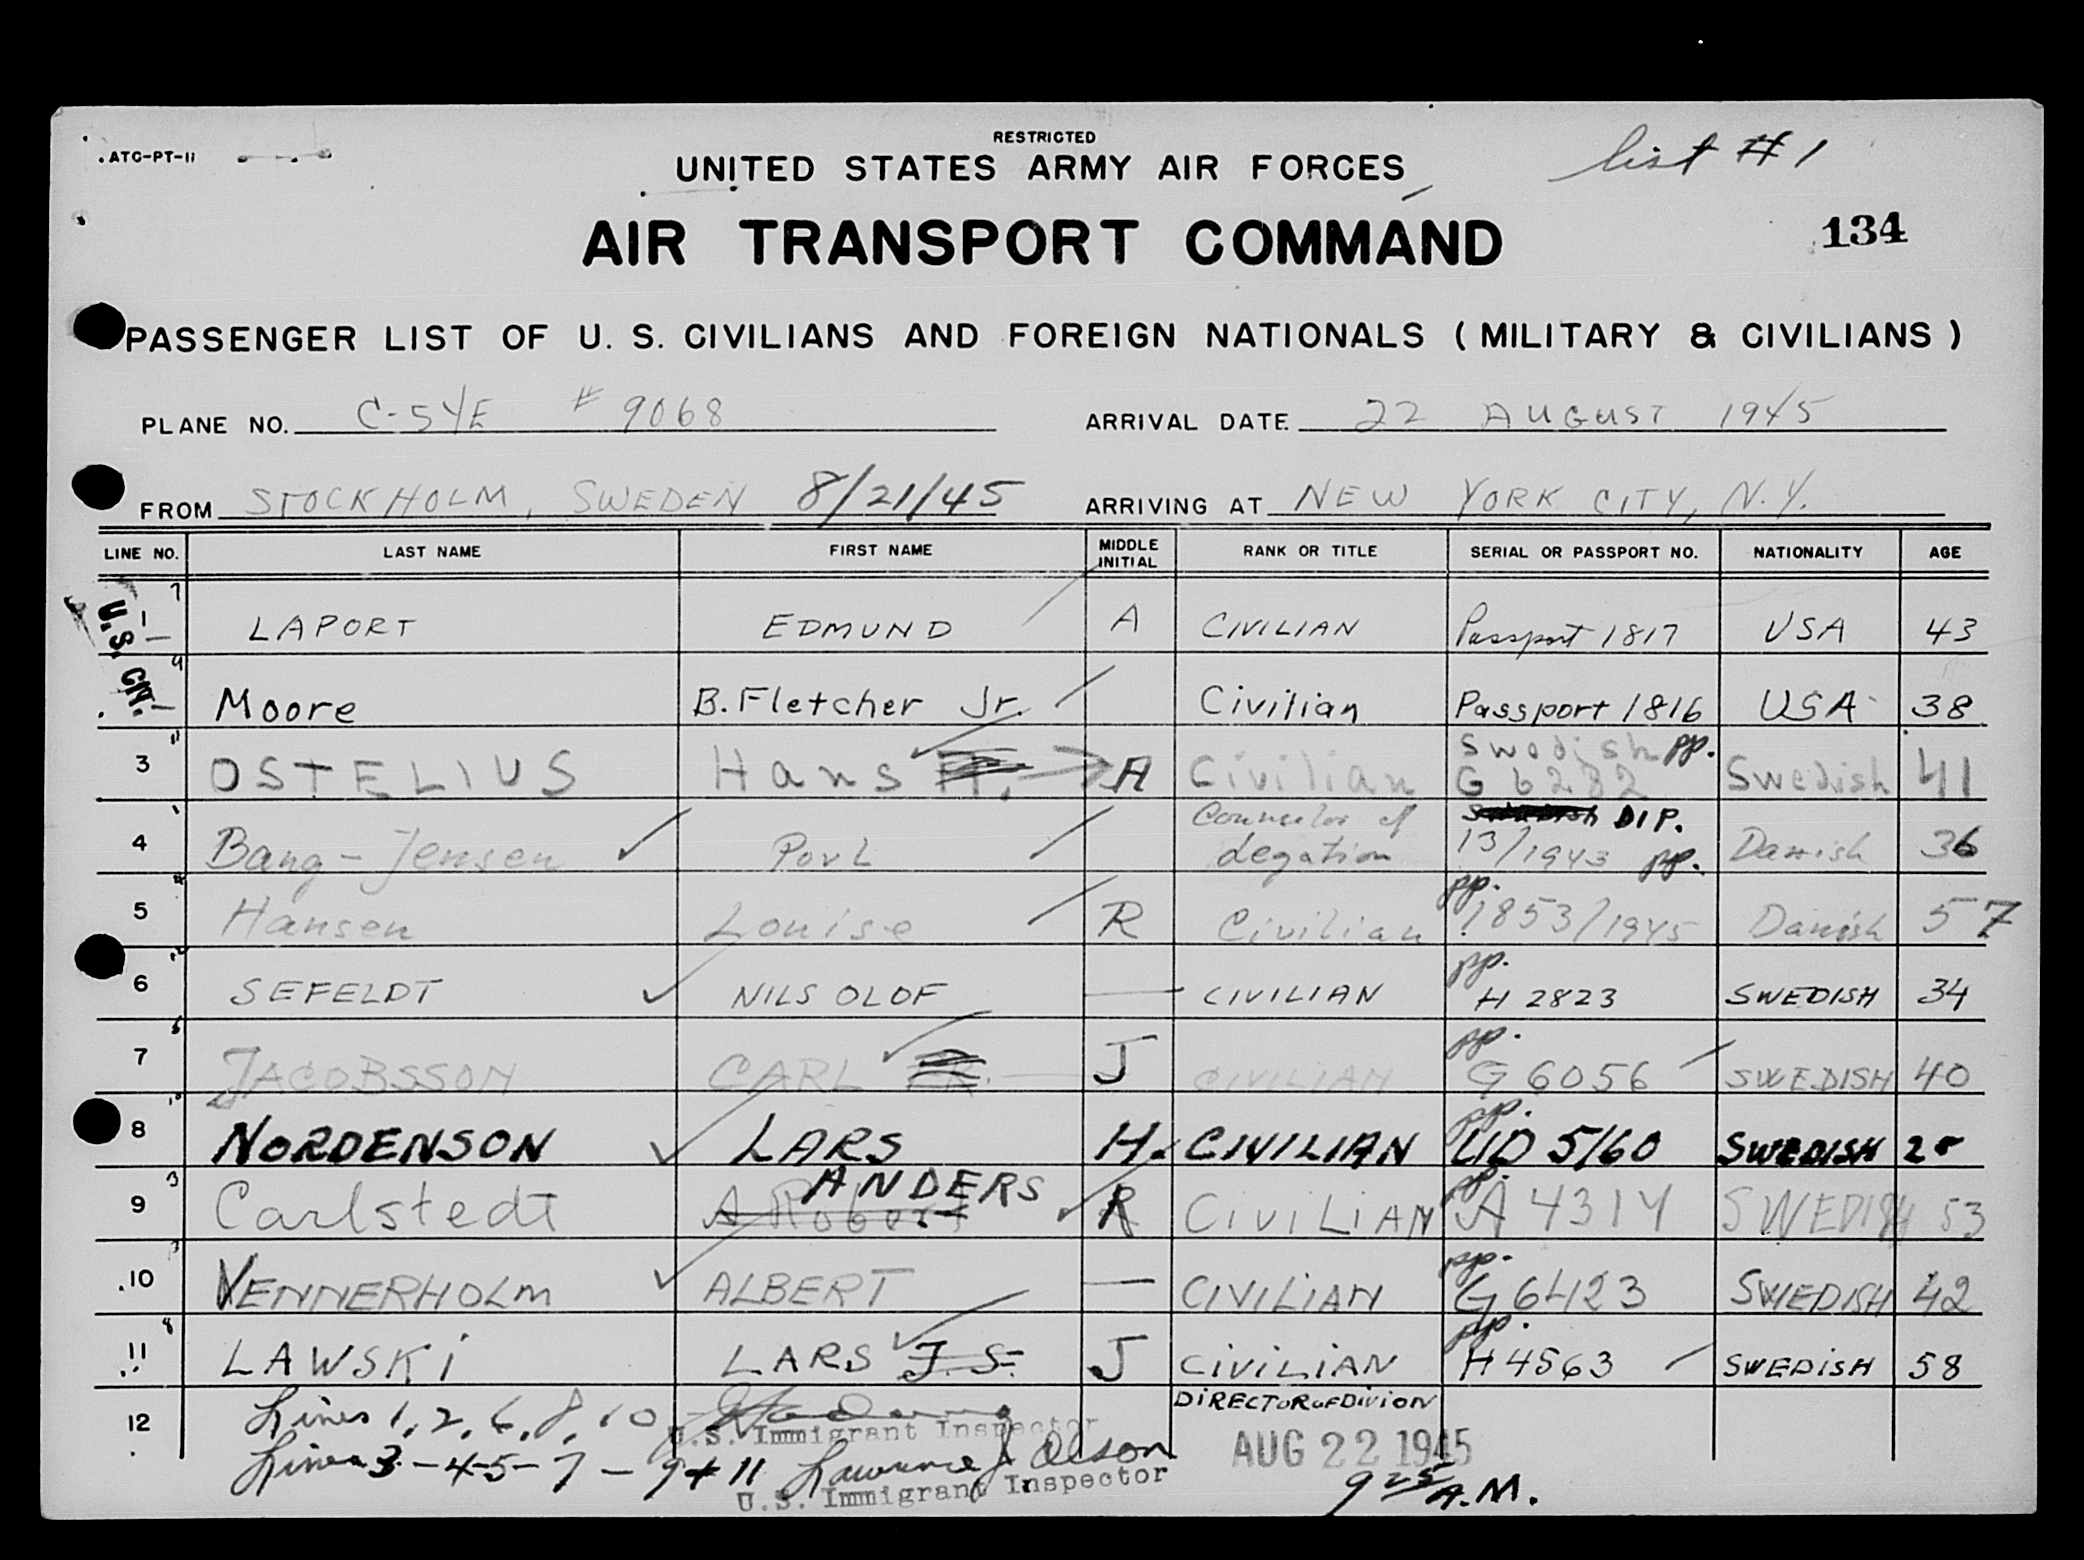 ATC-PT-11
RESTRICTED
list #1
UNITED STATES ARMY AIR FORCES
AIR TRANSPORT COMMAND
134
PASSENGER LIST OF U. S. CIVILIANS AND FOREIGN NATIONALS (MILITARY & CIVILIANS)
PLANE NO. C-54E # 9068 ARRIVAL DATE 22 AUGUST 1945
FROM STOCKHOLM, SWEDEN 8/21/45 ARRIVING AT NEW YORK CITY, N.Y.
LINE NO. LAST NAME FIRST NAME MIDDLE INITIAL RANK OR TITLE SERIAL OR PASSPORT NO. NATIONALITY AGE
U.S. CIT.
1 LAPORT EDMUND A CIVILIAN Passport 1817 USA 43
Moore B. Fletcher Jr. Civilian Passport 1816 USA 38
3 OSTELIUS Hans A Civilian Swedish pp. G 6282 Swedish 41
4 Bang-Jensen Povl Counselor of legation DIP. 13/1943 pp. Danish 36
5 Hansen Louise R Civilian pp. 1853/1945 Danish 57
6 SEFELDT NILS OLOF — CIVILIAN pp. H 2823 SWEDISH 34
7 JACOBSSON CARL J CIVILIAN pp. G 6056 SWEDISH 40
8 NORDENSON LARS H. CIVILIAN pp. UD 5160 SWEDISH
9 Carlstedt A Robert ANDERS R CIVILIAN pp. A 4314 SWEDISH 53
10 VENNERHOLM ALBERT — CIVILIAN pp. G 6423 SWEDISH 42
11 LAWSKI LARS J. S. J CIVILIAN pp. H 4563 SWEDISH 58
12 Lines 1, 2, 6, 8, 10 DIRECTOR OF DIVION
U.S. Immigrant Inspector
Lines 3-4-5-7-9+11 Lawrence J Olson AUG 22 1945
U.S. Immigrant Inspector 9 25 A.M.